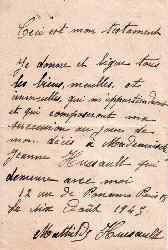 Ceci est mon testament
Je donne et lègue tous
les biens, meubles, et
immeubles, qui m'appartiendront
et qui composeront ma
succession au jour de
mon décès à Mademoiselle
Jeanne Hussault qui
demeure avec moi
12 rue de Panama Paris 18
le six Août 1943
Mathilde Hussault